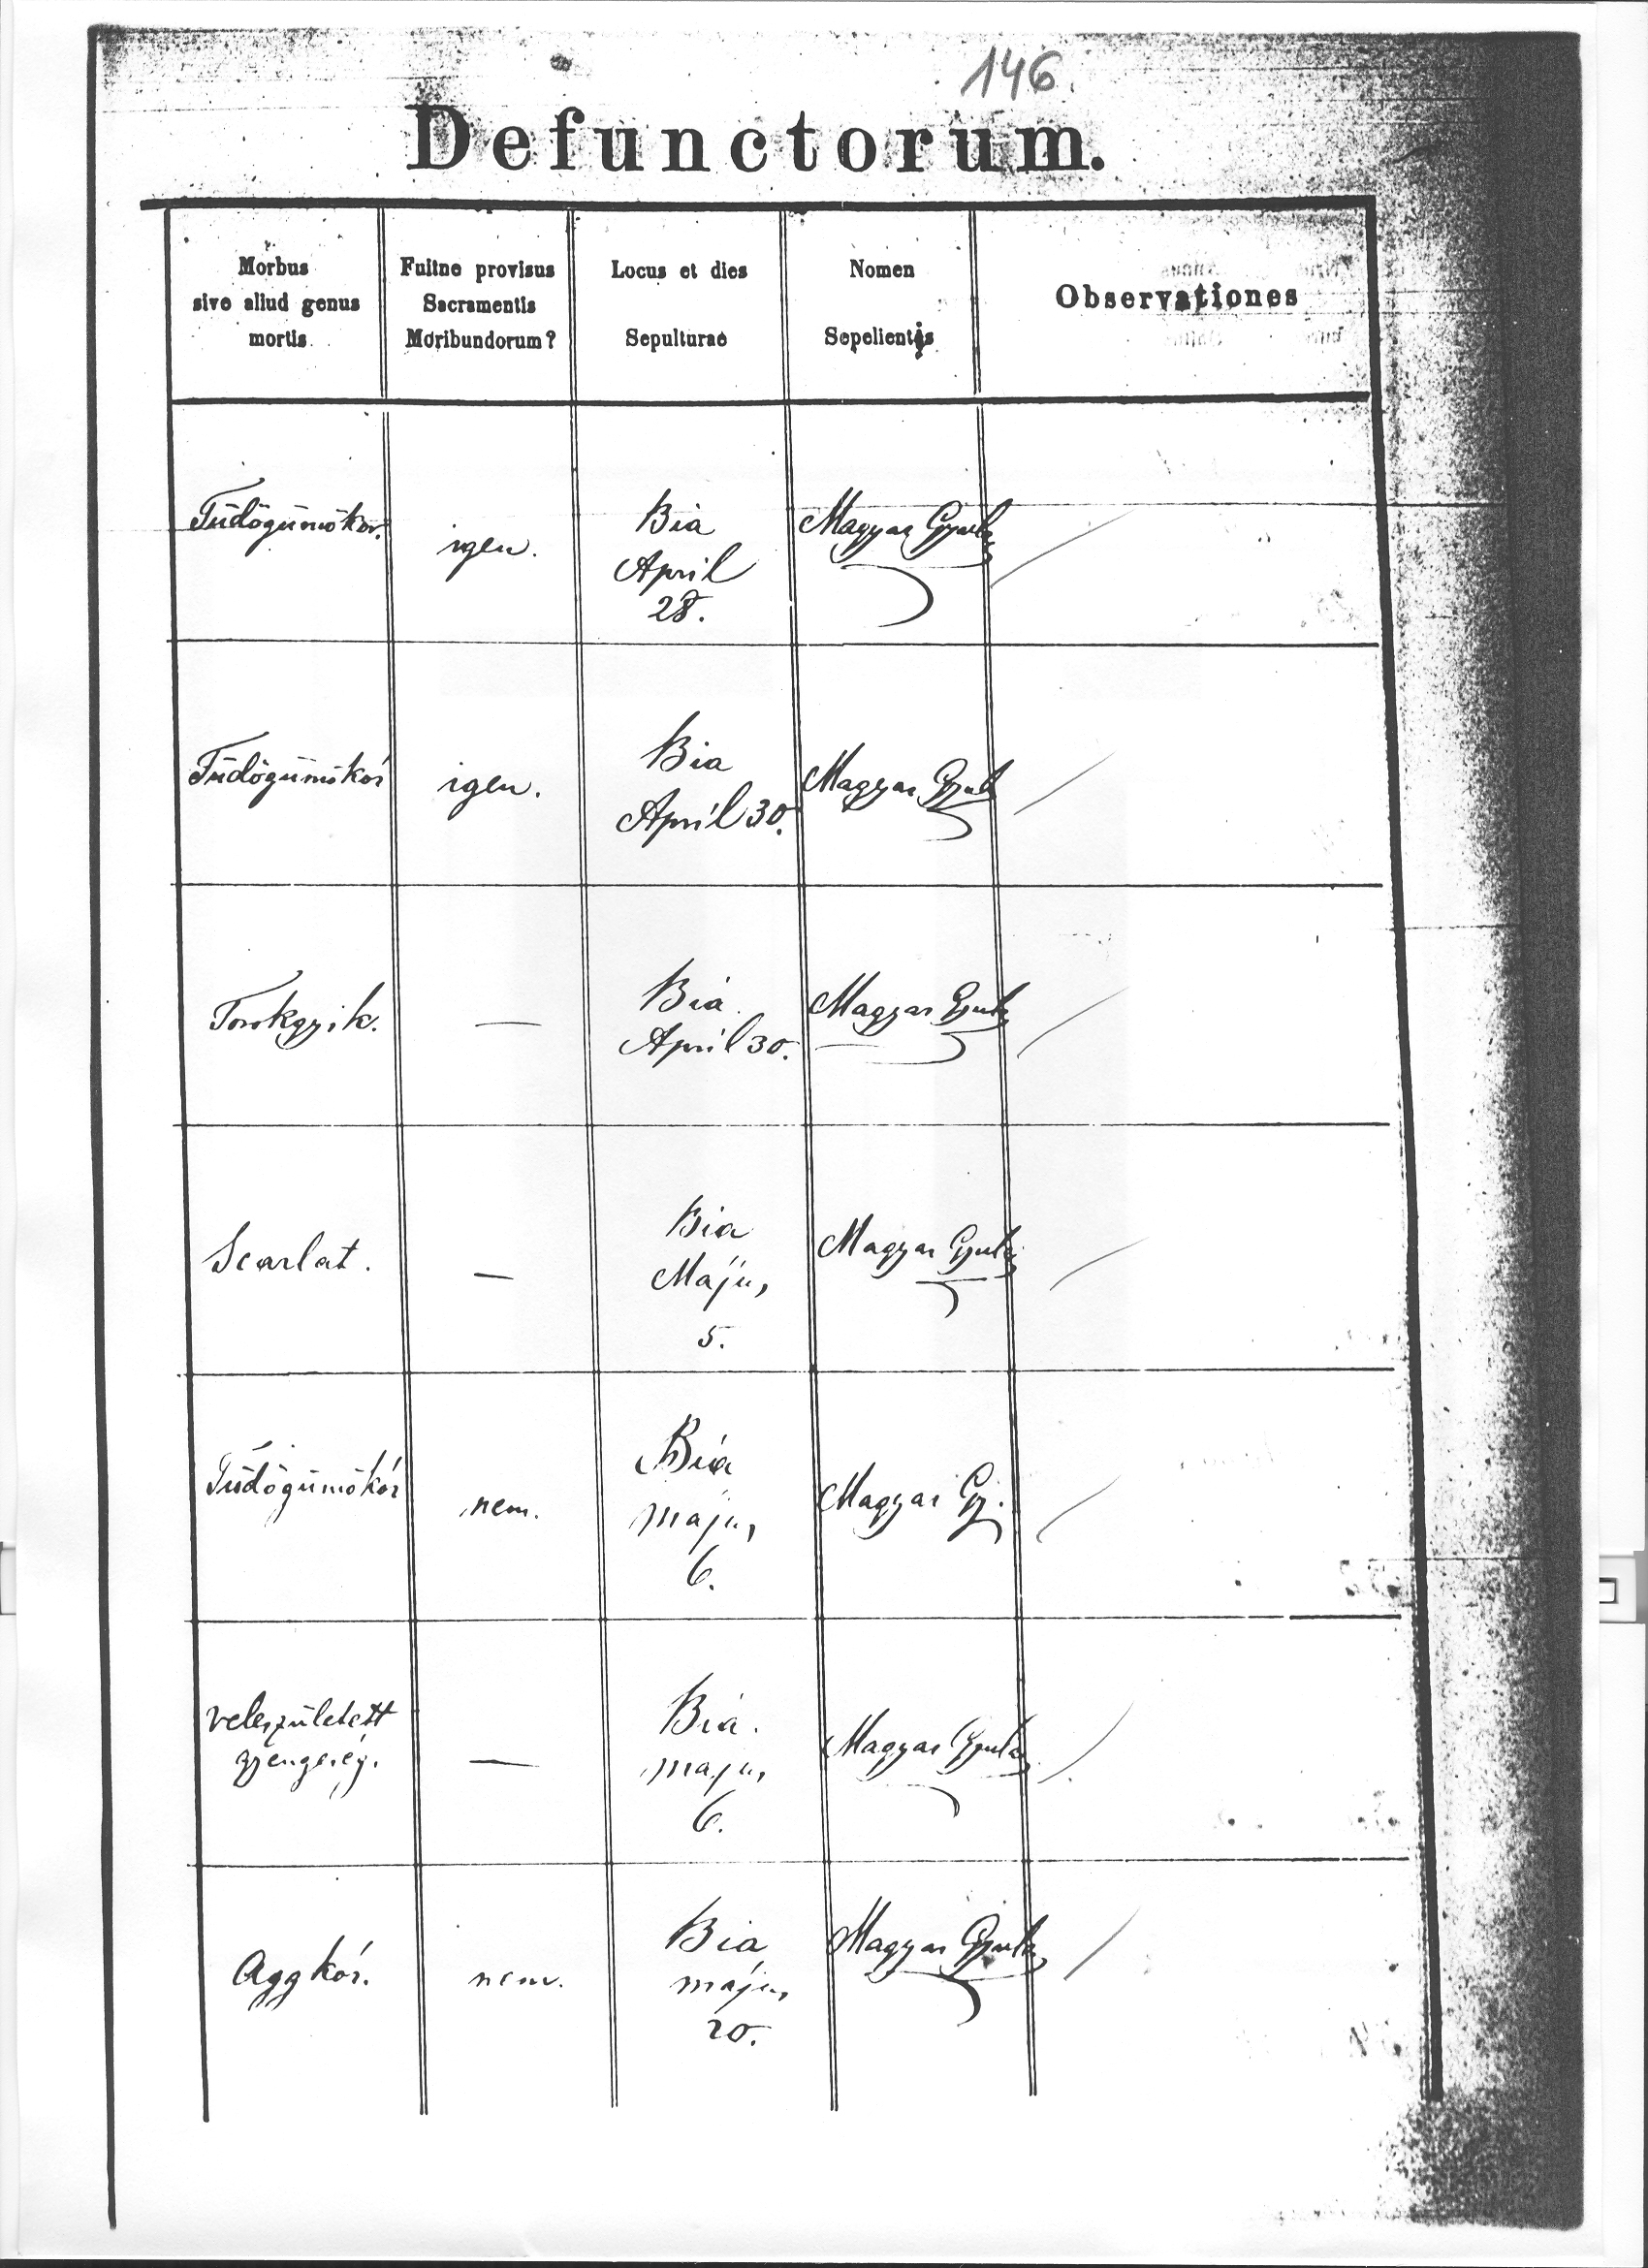 146.
Defunctorum.
Morbus
sive aliud genus
mortis
Fuitne provisus
Sacramentis
Moribundorum?
Locus et dies
Sepulturae
Nomen
Sepelientis
Observationes
Tüdőgümőkór.
igen.
Bia
April
28.
Magyar Gyula
Tüdőgümőkór
igen.
Bia
April 30.
Magyar Gyula
Torokgyik.
—
Bia
April 30.
Magyar Gyula
Scarlat.
—
Bia
Május
5.
Magyar Gyula
Tüdőgümőkór
nem.
Bia
május
6.
Magyar Gy.
veleszületett
gyengeség.
—
Bia.
május
6.
Magyar Gyula
Aggkór.
nem.
Bia
május
20.
Magyar Gyula